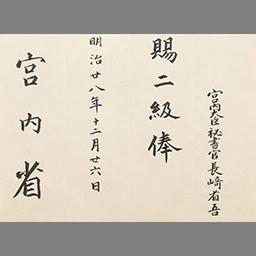 宮内大臣秘書官長崎省吾
賜二級俸
明治廿八年十二月廿六日
宮内省